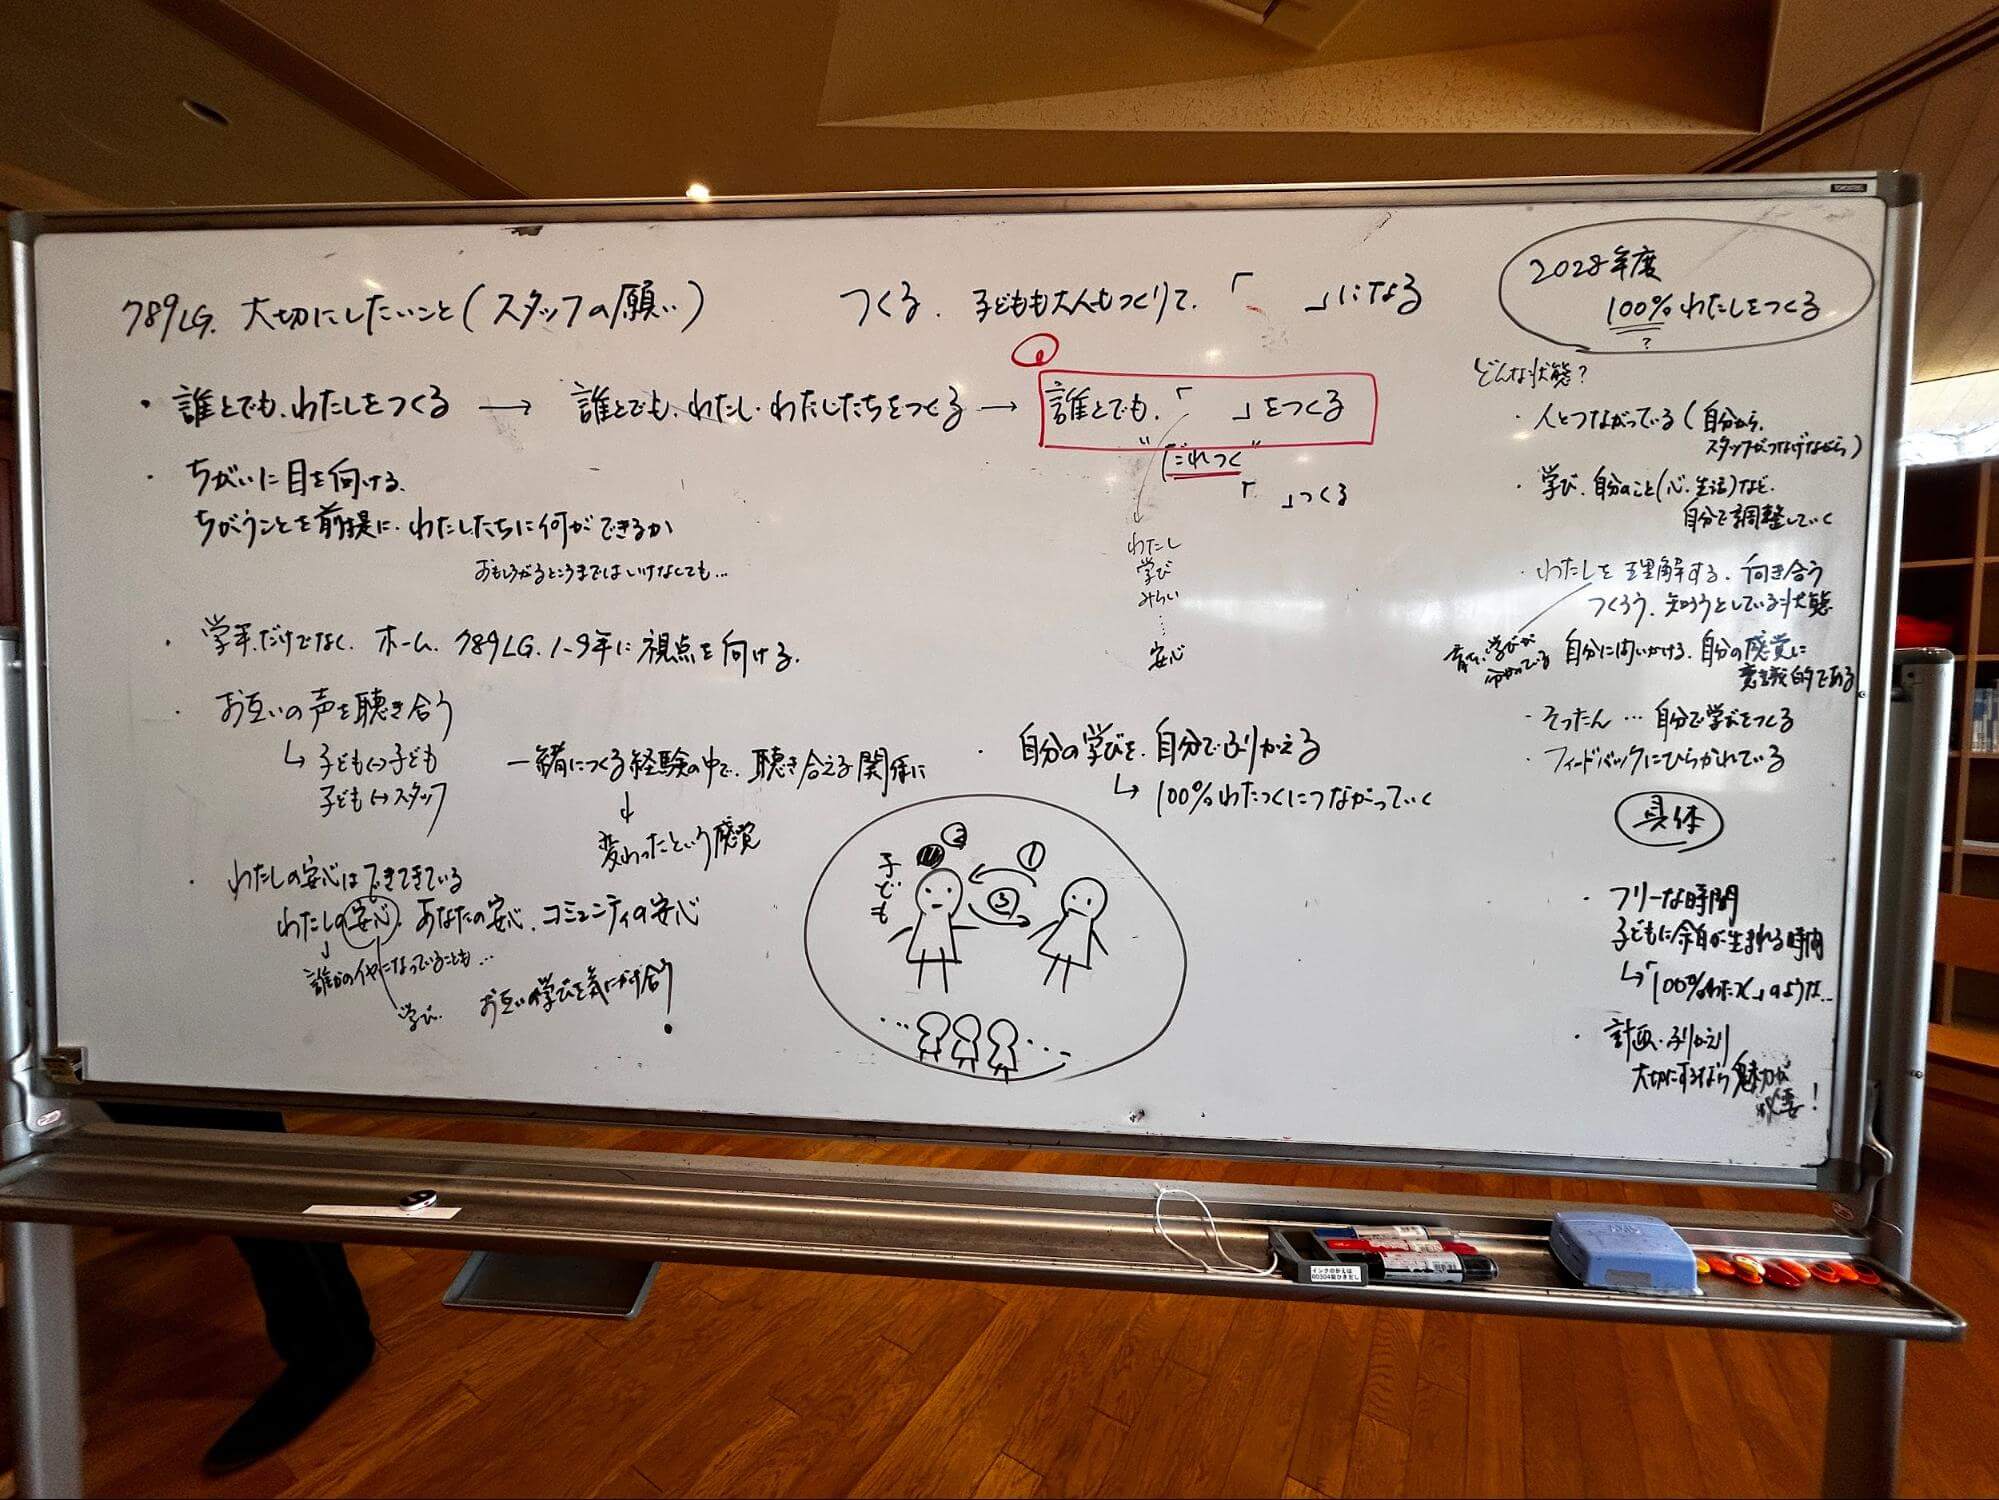 789LG. 大切にしたいこと(スタッフの願い)
つくる. 子どもも大人もつくりて.「 」になる
・誰とでも.わたしをつくる → 誰とでも.わたし・わたしたちをつくる → 誰とでも.「 」をつくる
"だれつく"
「 」つくる
わたし
学び
みらい
安心
・ちがいに目を向ける.
ちがうことを前提に.わたしたちに何ができるか
おもしろがるところまではいけなくても…
・学年だけでなく.ホーム.789LG.1-9年に視点を向ける.
・お互いの声を聴き合う
↳ 子ども↔子ども
子ども↔スタッフ
一緒につくる経験の中で.聴き合える関係に
↓
変わったという感覚
・わたしの安心はできてきている
わたしの安心.あなたの安心.コミュニティの安心
↓
誰かのイヤになっていることも…
学び.
お互いの学びを気にかけ合う
・自分の学びを.自分でふりかえる
↳ 100%わたつくにつながっていく
子ども
②
①
③
2028年度
100%わたしをつくる
?
どんな状態?
・人とつながっている(自分から.
スタッフがつなげながら)
・学び.自分のこと(心.生活)など.
自分で調整していく
・わたしを理解する.向き合う
つくろう.知ろうとしている状態
学びが
分かっている
自分に問いかける.自分の感覚に
意識的である
・そったん…自分で学びをつくる
・フィードバックにひらかれている
具体
・フリーな時間
子どもに余白が生まれる時間
↳「100%わたつく」のような…
・計画・ふりかえり
大切にするなら魅力が
必要!
インクのかえは